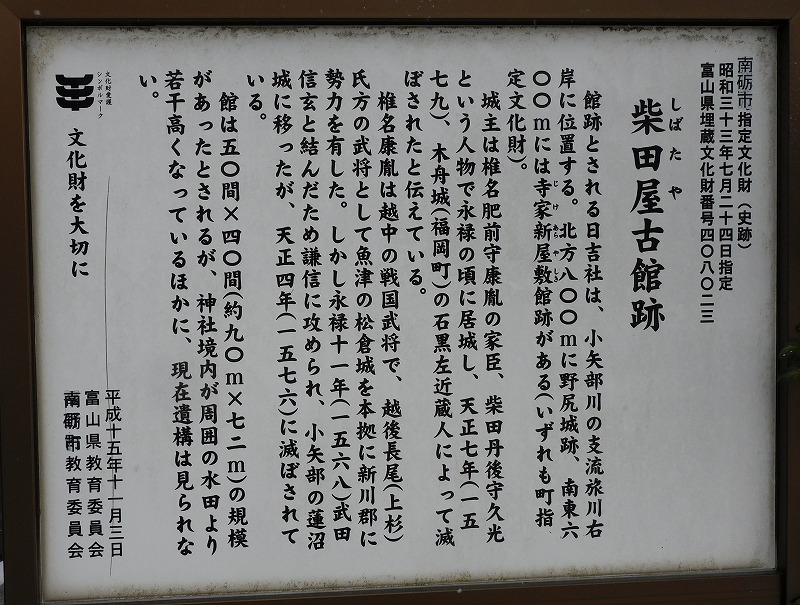 南砺市指定文化財（史跡）
昭和三十三年七月二十四日指定
富山県埋蔵文化財番号四〇八〇二三
しばたや
柴田屋古館跡
館跡とされる日吉社は、小矢部川の支流旅川右
岸に位置する。北方八〇〇ｍに野尻城跡、南東六
〇〇ｍには寺家新屋敷館跡がある(いずれも町指
じけあらやしき
定文化財)。
城主は椎名肥前守康胤の家臣、柴田丹後守久光
という人物で永禄の頃に居城し、天正七年(一五
七九)、木舟城(福岡町)の石黒左近蔵人によって滅
ぼされたと伝えている。
椎名康胤は越中の戦国武将で、越後長尾(上杉)
氏方の武将として魚津の松倉城を本拠に新川郡に
勢力を有した。しかし永禄十一年(一五六八)武田
信玄と結んだため謙信に攻められ、小矢部の蓮沼
城に移ったが、天正四年(一五七六)に滅ぼされて
いる。
館は五〇間×四〇間(約九〇ｍ×七二ｍ)の規模
があったとされるが、神社境内が周囲の水田より
若干高くなっているほかに、現在遺構は見られな
い。
文化財愛護
シンボルマーク
文化財を大切に
平成十五年十一月三日
富山県教育委員会
南砺市教育委員会